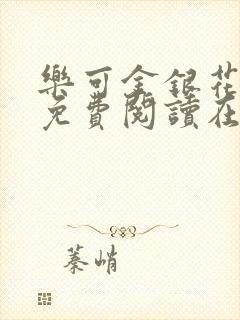 樂可金銀花
免費閱讀在
蓁峭